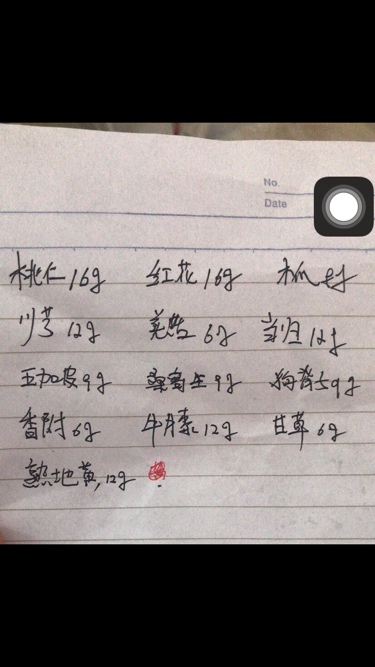 No.
Date
桃仁16g 红花16g 木瓜
川芎12g 羌活6g 当归12g
五加皮9g 桑寄生9g 狗脊9g
香附6g 牛膝12g 甘草6g
熟地黄,12g